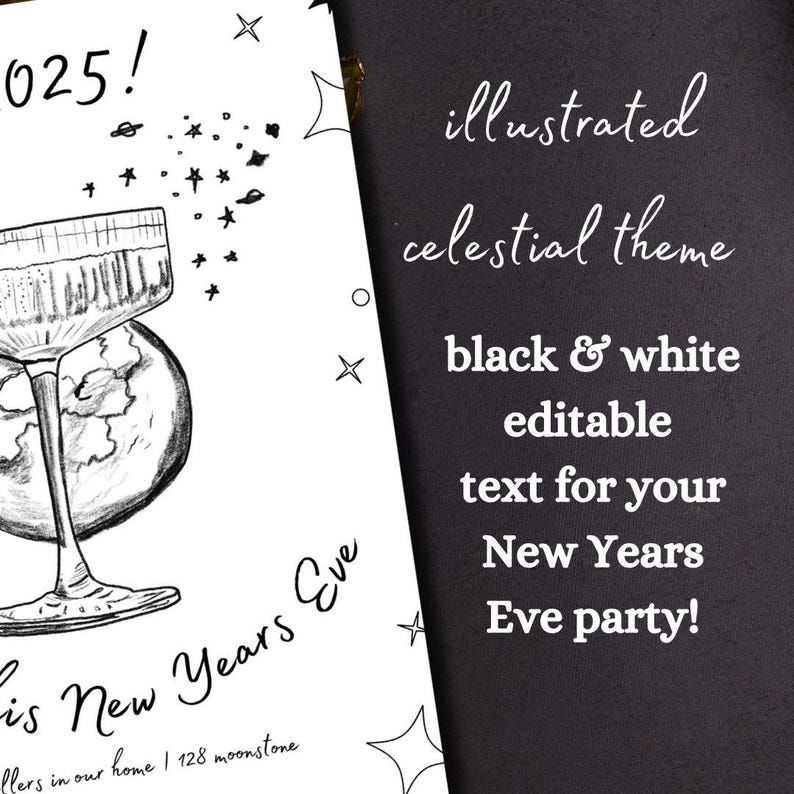 2025!
this New Years Eve
in our home | 128 moonstone
illustrated
celestial theme
black & white
editable
text for your
New Years
Eve party!